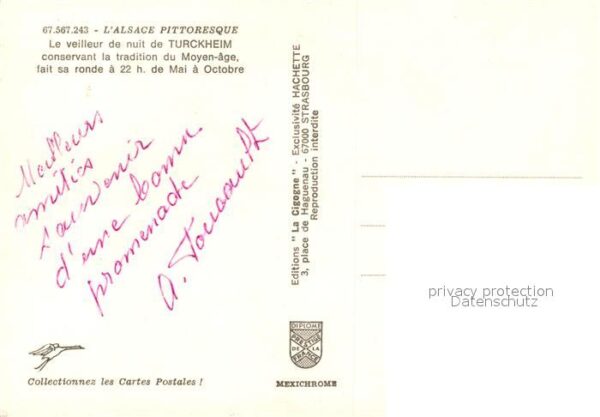 67.567.243 - L'ALSACE PITTORESQUE
Le veilleur de nuit de TURCKHEIM
conservant la tradition du Moyen-âge,
fait sa ronde à 22 h. de Mai à Octobre
Meilleurs
amitiés
Souvenir
d'une bonne
promenade
A.
Editions "La Cigogne" - Exclusivité HACHETTE
3, place de Haguenau - 67000 STRASBOURG
Reproduction interdite
privacy protection
Datenschutz
DIPLOME
PRESTIGE
DE LA
FRANCE
Collectionnez les Cartes Postales !
MEXICHROME